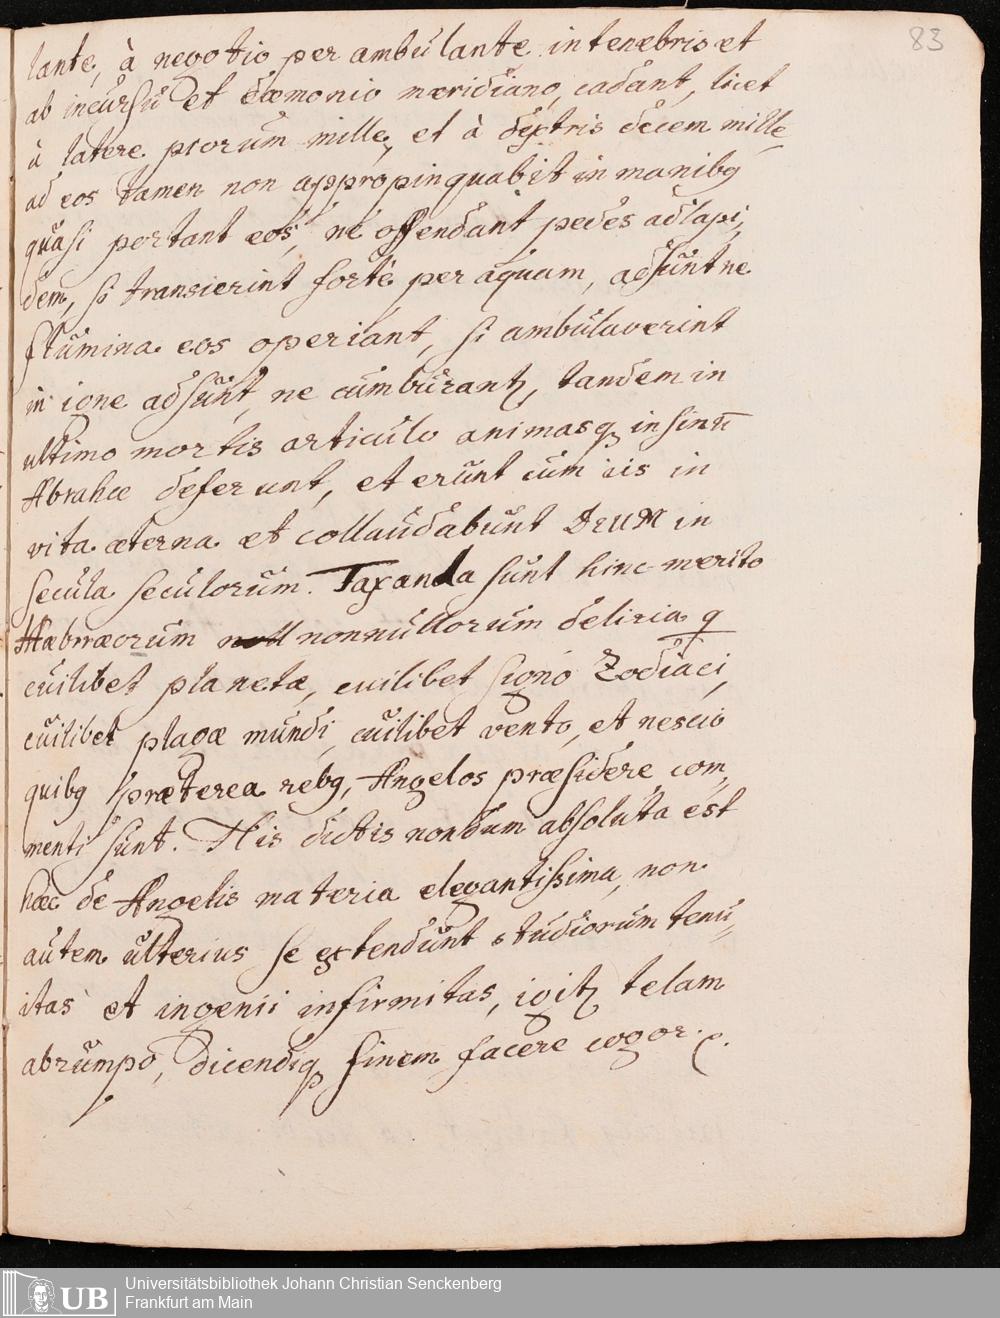 83
lante, à negotio per ambulante in tenebris et
ab incursu et dæmonio meridiano, cadant, licet
à latere ptorum mille, et à dextris decem mille
ad eos tamen non appropinquabit in manibq
quasi portant eos, ne offendant pedes ad lapi,,
dem, si transierint forte per aquam, adsunt ne
flumina eos operiant, si ambulaverint
in igne adsunt, ne cumburantr, tandem in
ultimo mortis articulo animasq in sinũ
Abrahæ deferunt, et erunt cum iis in
vita æterna et collaudabunt DEUM in
secula seculorum. Taxanda sunt hinc merito
Hæbræorum nonnullorum deliria q
cuilibet planetæ, cuilibet signo Zodiaci,
cuilibet plagæ mundi, cuilibet vento, et nescio
quibq præterea rebq, Angelos præsidere com,,
menti sunt. His dictis nondum absoluta est
hæc de Angelis materia elegantissima, non
autem ulterius se extendunt studiorum tenu,,
itas et ingenii infirmitas, igitr telam
abrumpo, dicendiq finem facere cogor.
UB
Universitätsbibliothek Johann Christian Senckenberg
Frankfurt am Main